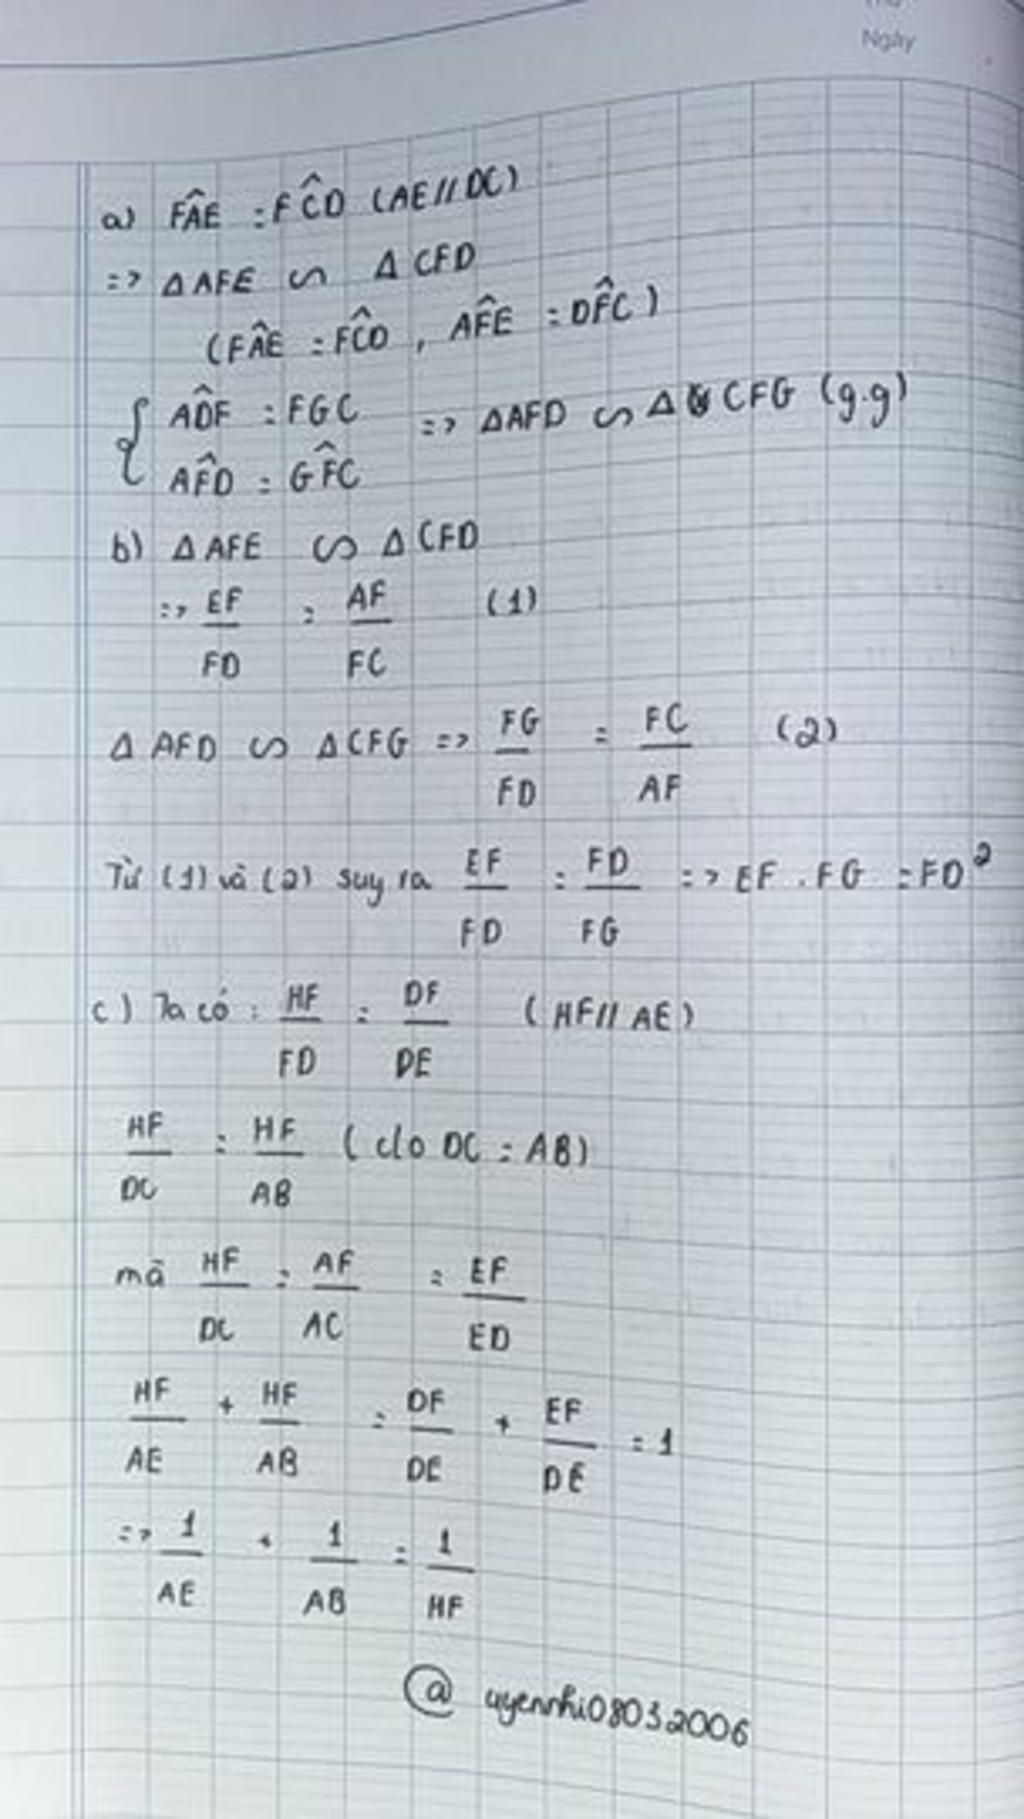 Ngày
a) FÂE = FĈD (AE // DC)
=> Δ AFE ∽ Δ CFD
(FÂE = FĈD , AF̂E = DF̂C)
{ AD̂F = FGC => ΔAFD ∽ Δ CFG (g.g)
AF̂D = GF̂C
b) Δ AFE ∽ Δ CFD
=> EF/FD = AF/FC (1)
Δ AFD ∽ Δ CFG => FG/FD = FC/AF (2)
Từ (1) và (2) suy ra EF/FD = FD/FG => EF . FG = FD²
c) Ta có : HF/FD = DF/DE (HF // AE)
HF/DC = HF/AB (do DC = AB)
mã HF/DC = AF/AC = EF/ED
HF/AE + HF/AB = DF/DE + EF/DE = 1
=> 1/AE + 1/AB = 1/HF
@ uyennhi08032006